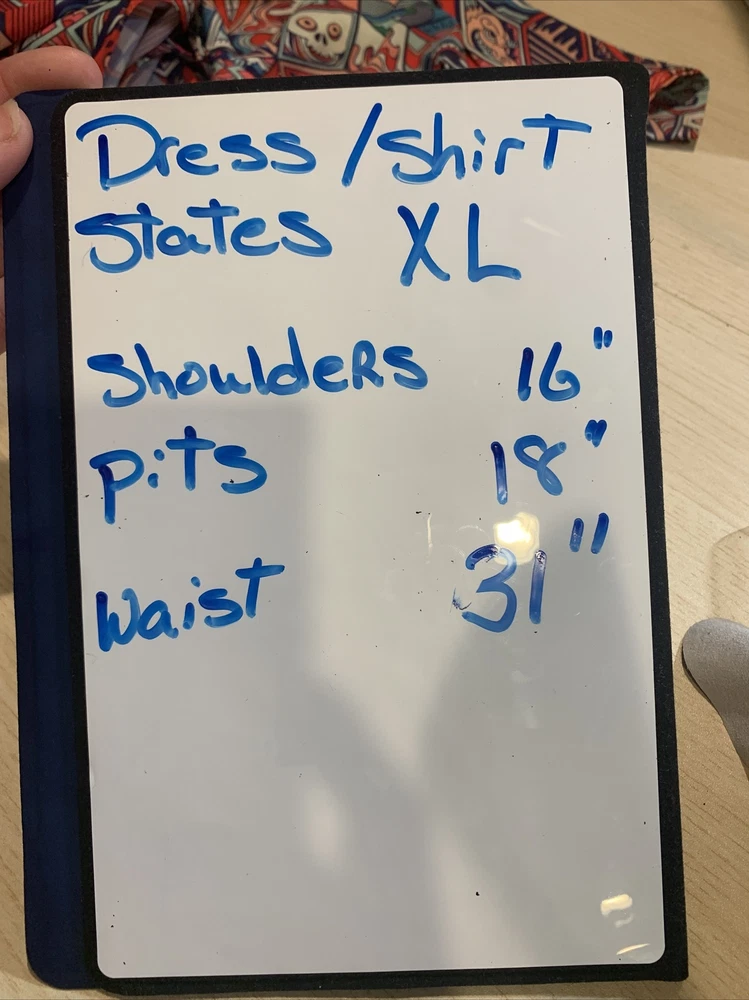 Dress / Shirt
States XL
ShouldeRs 16"
pits 18"
Waist 31"